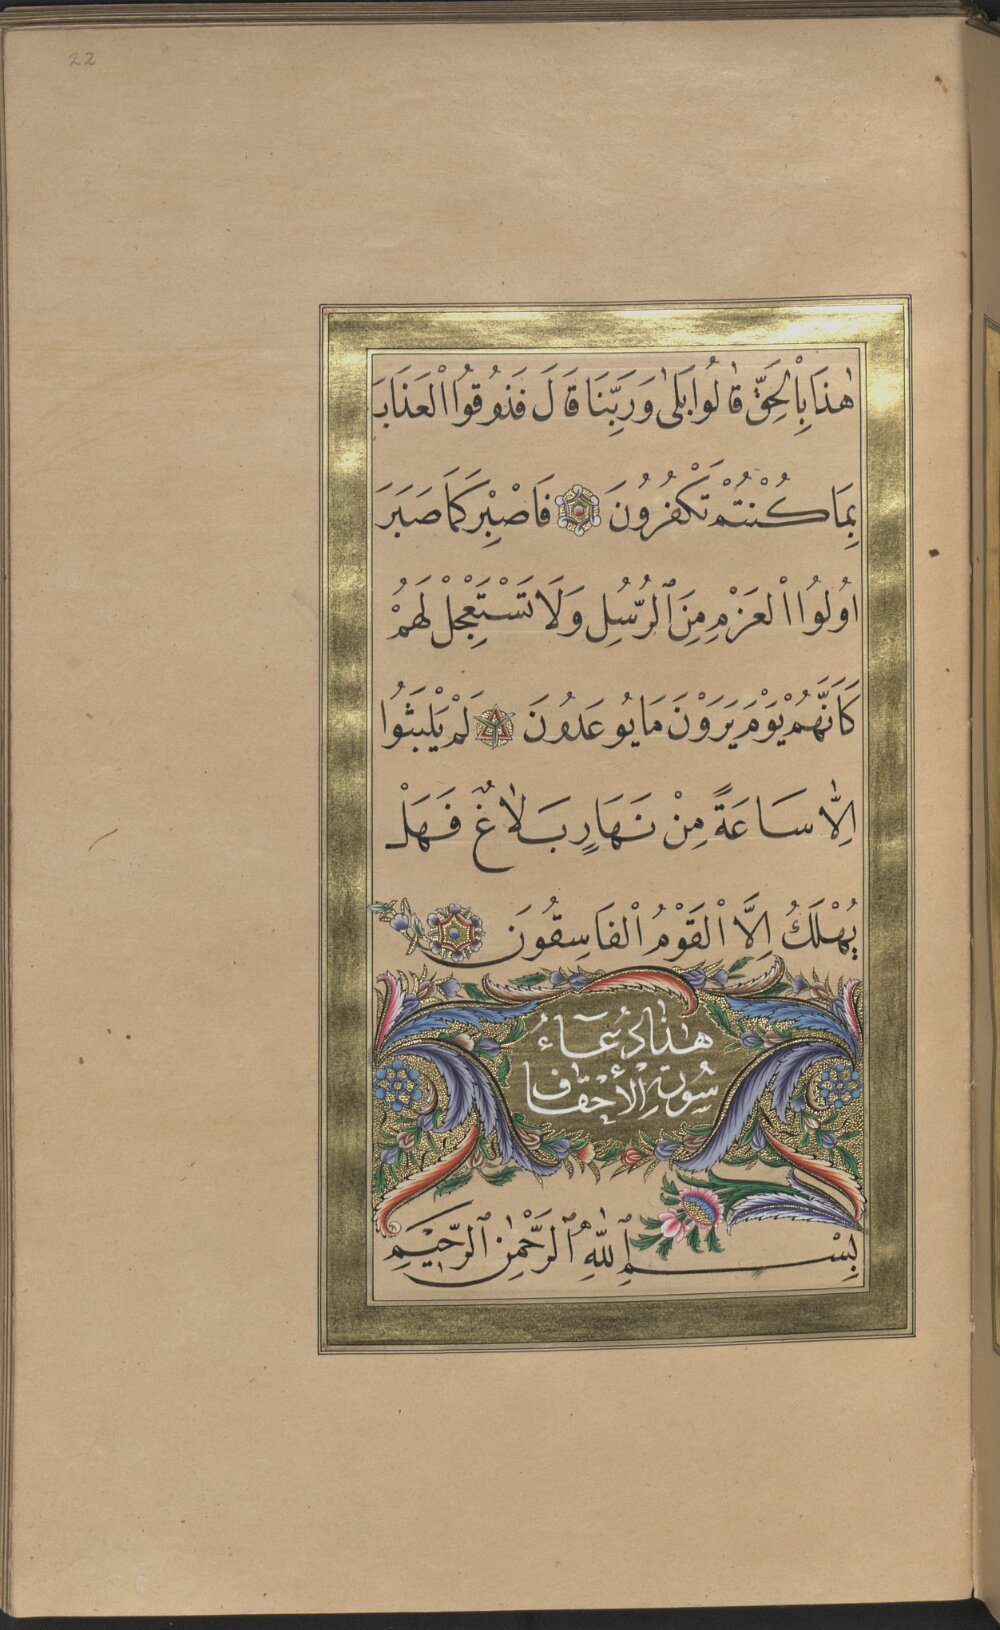 22
هٰذَا بِالْحَقِّ قَالُوا بَلٰى وَرَبِّنَا قَالَ فَذُوقُوا الْعَذَابَ
بِمَا كُنْتُمْ تَكْفُرُونَ فَاصْبِرْ كَمَا صَبَرَ
اُولُوا الْعَزْمِ مِنَ الرُّسُلِ وَلَا تَسْتَعْجِلْ لَهُمْ
كَاَنَّهُمْ يَوْمَ يَرَوْنَ مَا يُوعَدُونَ لَمْ يَلْبَثُوا
اِلَّا سَاعَةً مِنْ نَهَارٍ بَلَاغٌ فَهَلْ
يُهْلَكُ اِلَّا الْقَوْمُ الْفَاسِقُونَ
هٰذَا دُعَاءُ
سُورَةِ الْاَحْقَافِ
بِسْمِ اللّٰهِ الرَّحْمٰنِ الرَّحِيمِ